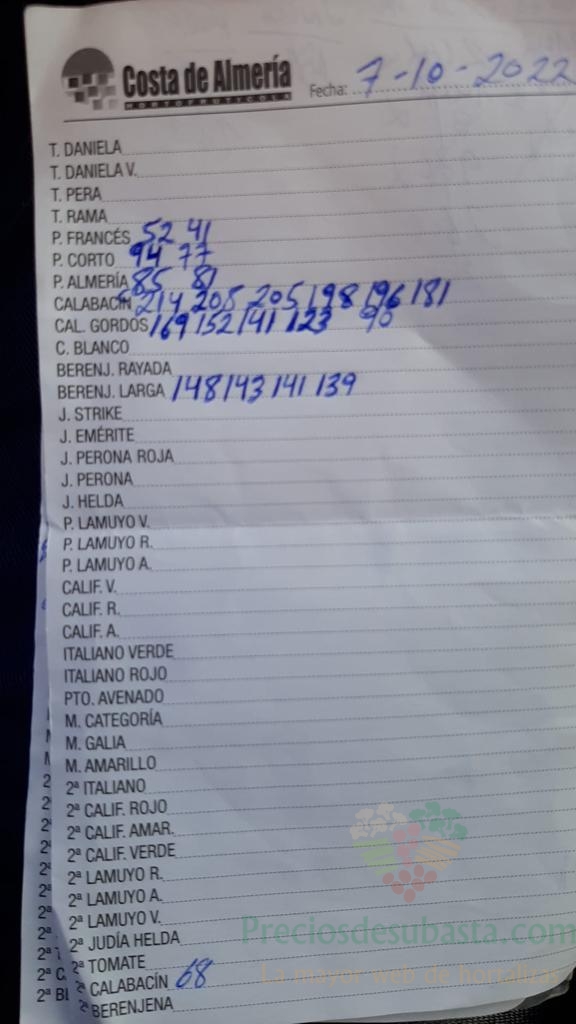 Costa de Almería
HORTOFRUTICOLA
Fecha: 7-10-2022
T. DANIELA
T. DANIELA V.
T. PERA
T. RAMA
P. FRANCÉS 52 41
P. CORTO 94 77
P. ALMERÍA 85 81
CALABACÍN 214 205 205 198 196 181
CAL. GORDOS 169 152 141 123 90
C. BLANCO
BERENJ. RAYADA
BERENJ. LARGA 148 143 141 139
J. STRIKE
J. EMÉRITE
J. PERONA ROJA
J. PERONA
J. HELDA
P. LAMUYO V.
P. LAMUYO R.
P. LAMUYO A.
CALIF. V.
CALIF. R.
CALIF. A.
ITALIANO VERDE
ITALIANO ROJO
PTO. AVENADO
M. CATEGORÍA
M. GALIA
M. AMARILLO
2ª ITALIANO
2ª CALIF. ROJO
2ª CALIF. AMAR.
2ª CALIF. VERDE
2ª LAMUYO R.
2ª LAMUYO A.
2ª LAMUYO V.
2ª JUDÍA HELDA
2ª TOMATE
2ª CALABACÍN 68
2ª BERENJENA
Preciosdesubasta.com